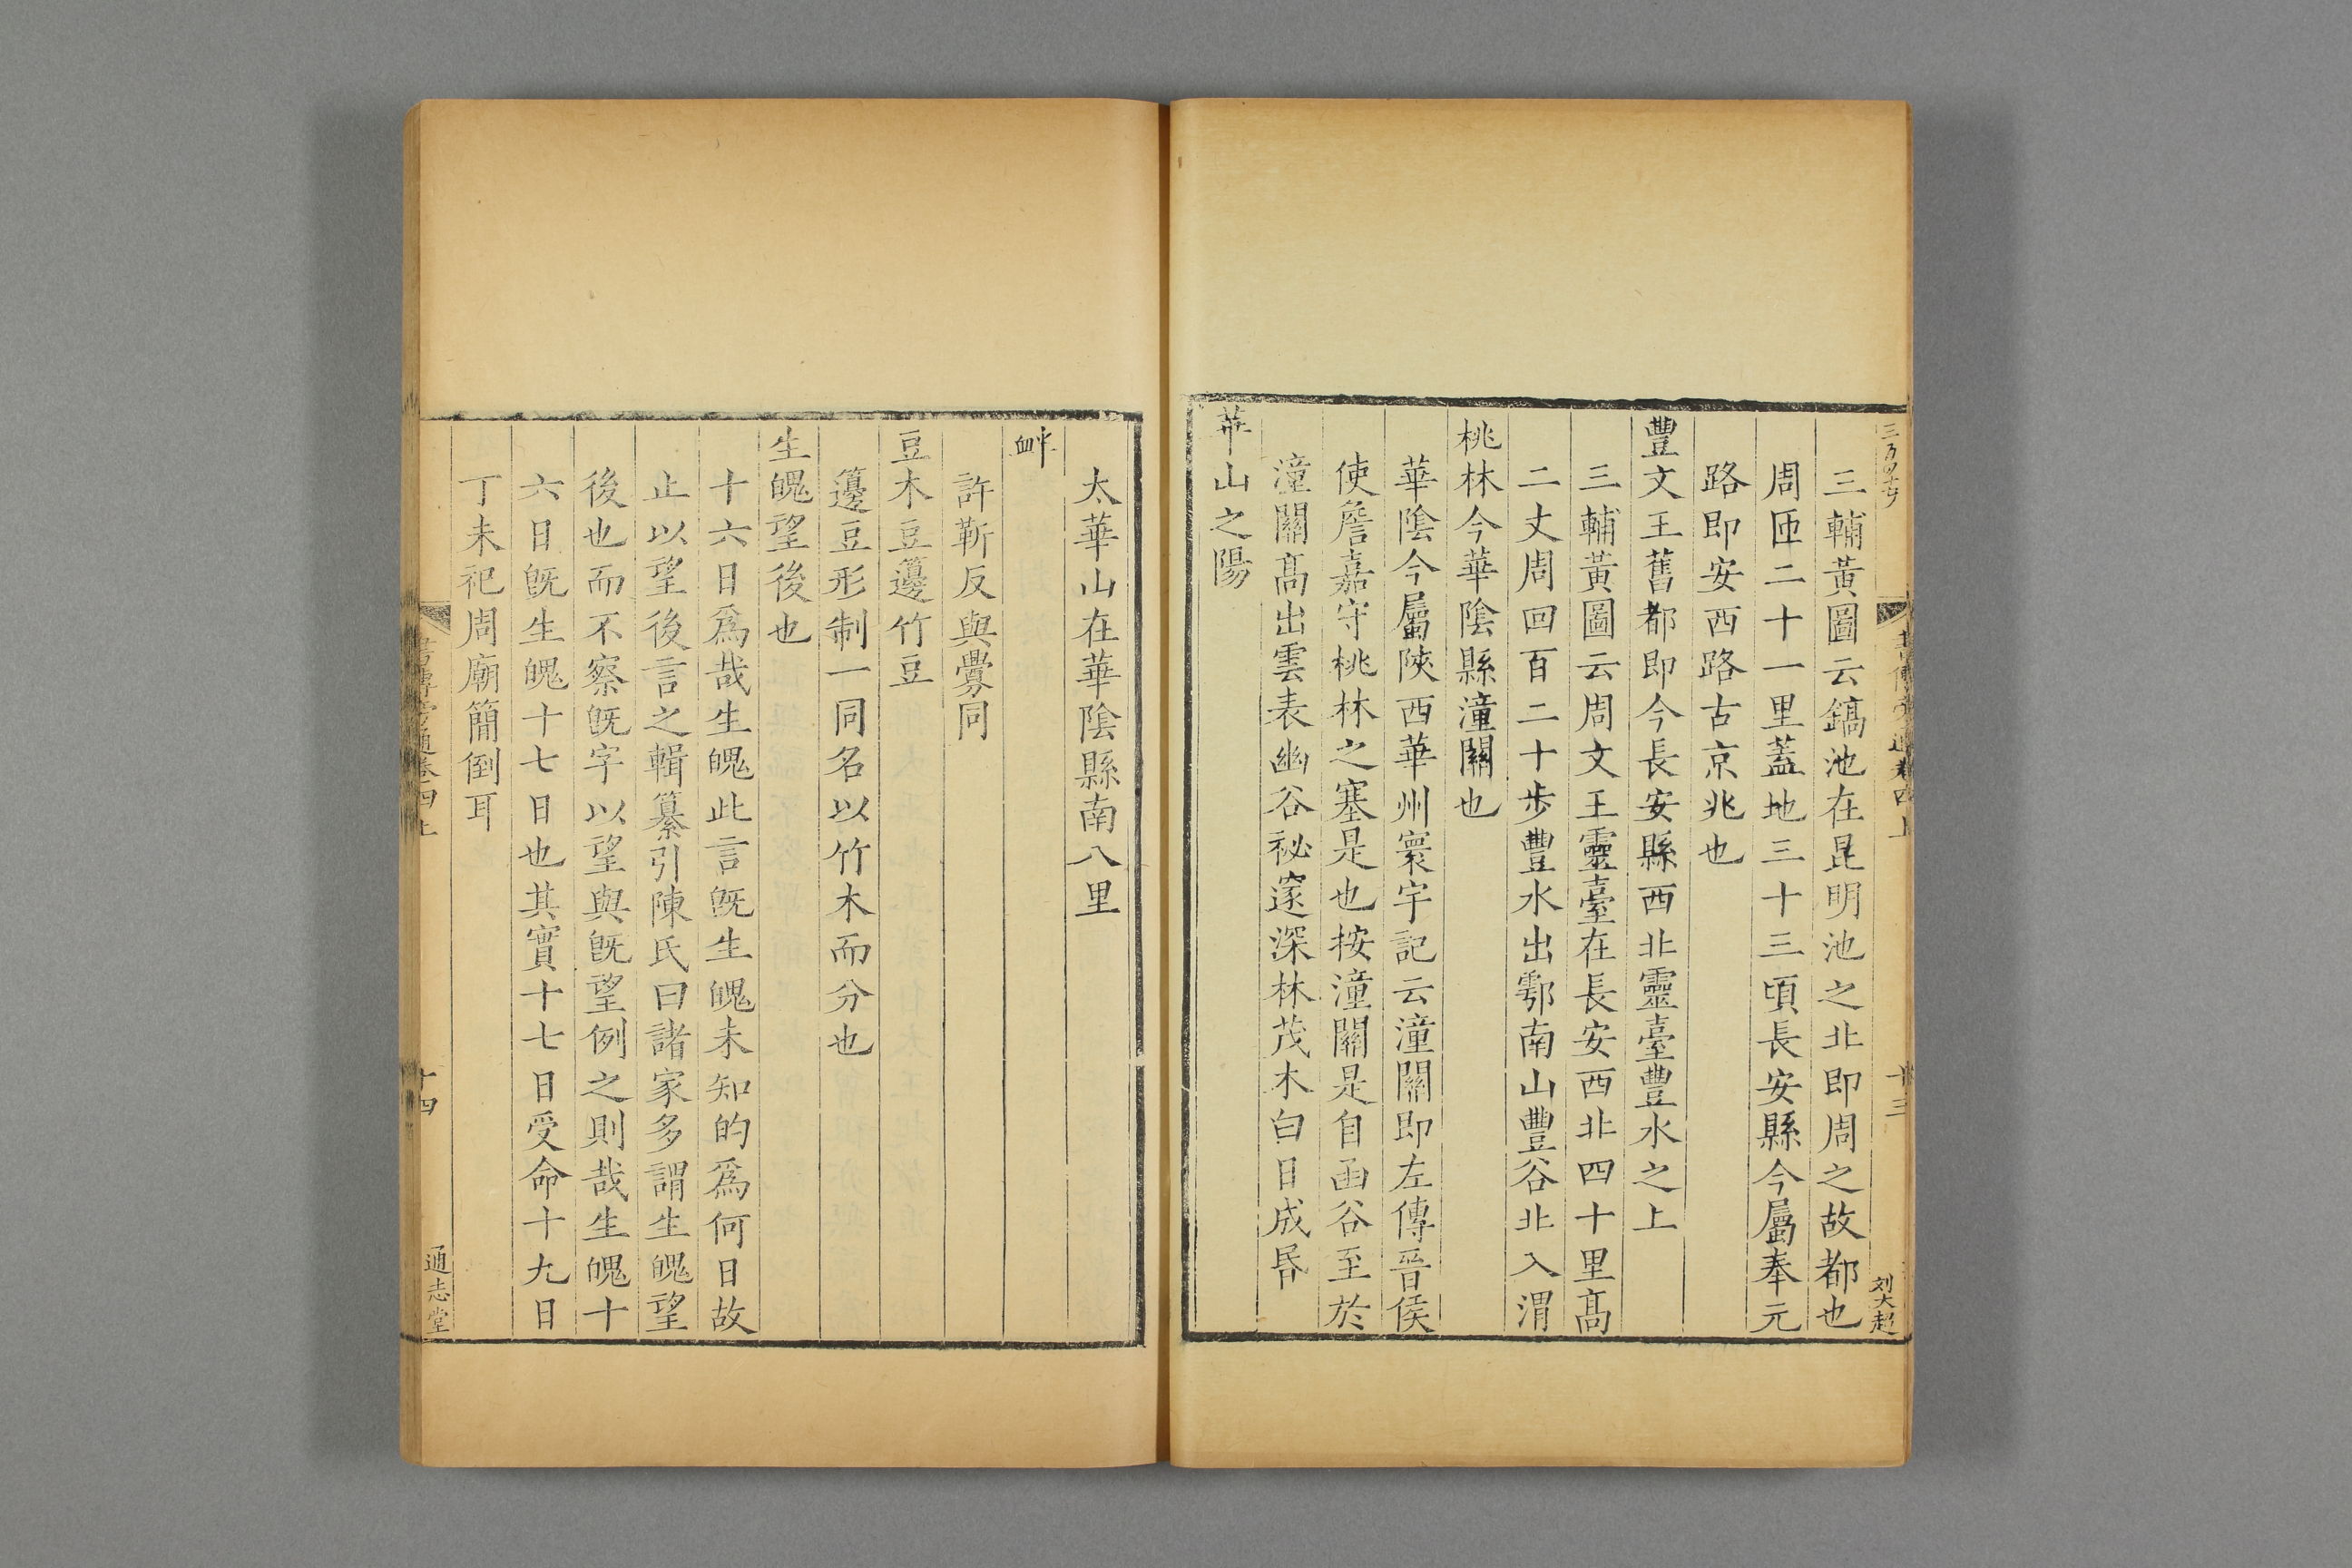 三輔黃圖云鎬池在昆明池之北即周之故都也
周匝二十一里蓋地三十三頃長安縣今屬奉元
路即安西路古京兆也
豐文王舊都即今長安縣西北靈臺豐水之上
三輔黃圖云周文王靈臺在長安西北四十里高
二丈周回百二十步豐水出鄠南山豐谷北入渭
桃林今華陰縣潼關也
華陰今屬陜西華州寰宇記云潼關即左傳晉侯
使詹嘉守桃林之塞是也按潼關是自函谷至於
潼關高出雲表幽谷祕窔深林茂木白日成昏
華山之陽
十三
刘大起
太華山在華陰縣南八里
衅
許靳反與釁同
豆木豆籩竹豆
籩豆形制一同名以竹木而分也
生魄望後也
十六日爲哉生魄此言旣生魄未知的爲何日故
止以望後言之輯纂引陳氏曰諸家多謂生魄望
後也而不察旣字以望與旣望例之則哉生魄十
六日旣生魄十七日也其實十七日受命十九日
丁未祀周廟簡倒耳
十四
通志堂